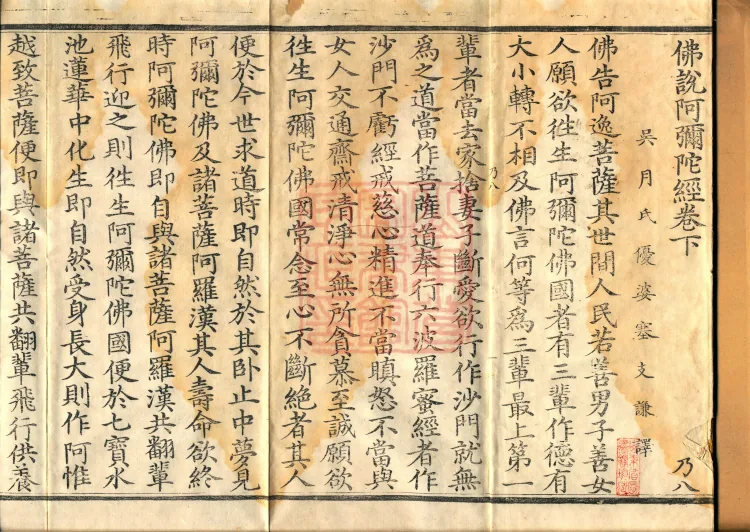 佛說阿彌陀經卷下
乃八
吳月氏優婆塞支謙譯
佛告阿逸菩薩其世間人民若善男子善女
人願欲徃生阿彌陀佛國者有三輩作德有
大小轉不相及佛言何等爲三輩最上第一
輩者當去家捨妻子斷愛欲行作沙門就無
爲之道當作菩薩道奉行六波羅蜜經者作
沙門不虧經戒慈心精進不當瞋怒不當與
女人交通齋戒清淨心無所貪慕至誠願欲
徃生阿彌陀佛國常念至心不斷絕者其人
便於今世求道時即自然於其卧止中夢見
阿彌陀佛及諸菩薩阿羅漢其人壽命欲終
時阿彌陀佛即自與諸菩薩阿羅漢共翻輩
飛行迎之則徃生阿彌陀佛國便於七寶水
池蓮華中化生即自然受身長大則作阿惟
越致菩薩便即與諸菩薩共翻輩飛行供養
乃八